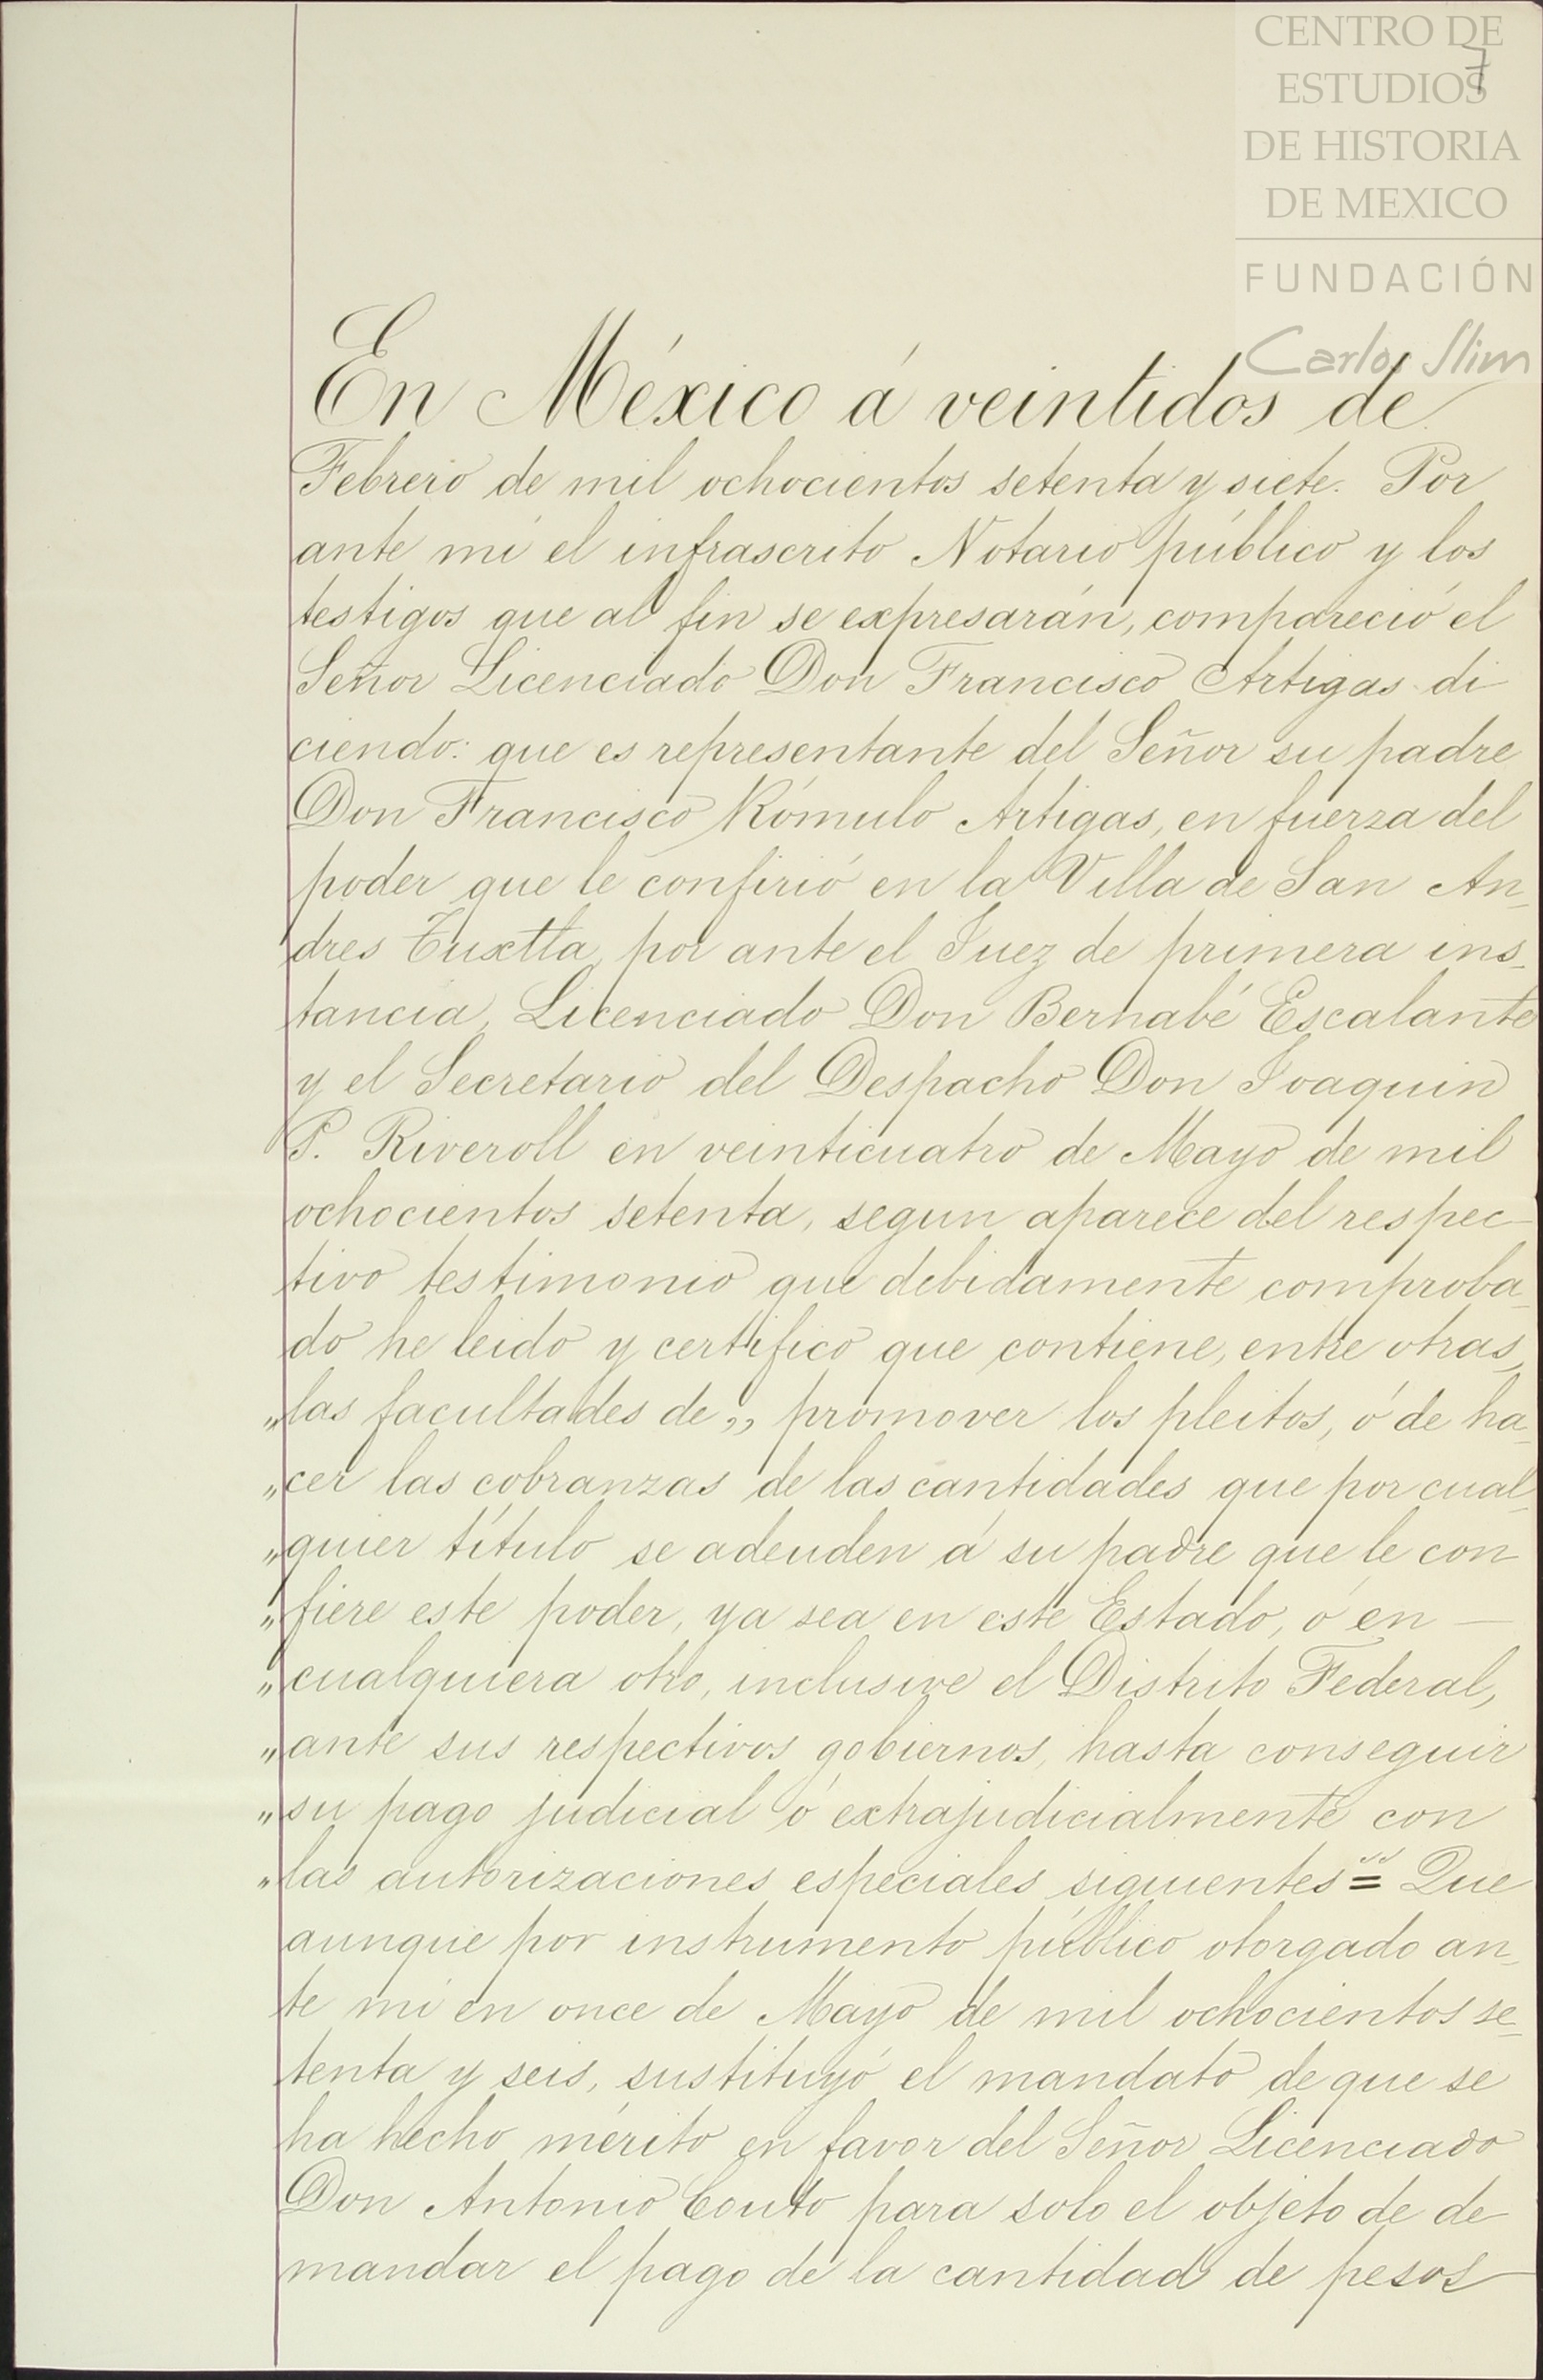 CENTRO DE
ESTUDIOS
DE HISTORIA
DE MEXICO
FUNDACIÓN
Carlos Slim
7
En México á veintidos de
Febrero de mil ochocientos setenta y siete. Por
ante mí el infrascrito Notario público y los
testigos que al fin se expresarán, compareció el
Señor Licenciado Don Francisco Artigas di
ciendo: que es representante del Señor su padre
Don Francisco Rómulo Artigas, en fuerza del
poder que le confirió en la Villa de San An-
dres Tuxtla, por ante el Juez de primera ins-
tancia, Licenciado Don Bernabé Escalante
y el Secretario del Despacho Don Joaquin
P. Riveroll en veinticuatro de Mayo de mil
ochocientos setenta, segun aparece del respec-
tivo testimonio que debidamente comproba-
do he leido y certifico que contiene, entre otras,
„las facultades de„ promover los pleitos, ó de ha-
„cer las cobranzas de las cantidades que por cual-
„quier título se adeuden á su padre que le con
„fiere este poder, ya sea en este Estado, ó en —
„cualquiera otro, inclusive el Distrito Federal,
„ante sus respectivos gobiernos, hasta conseguir
„su pago judicial ó extrajudicialmente con
„las autorizaciones especiales siguientes"= Que
aunque por instrumento público otorgado an-
te mí en once de Mayo de mil ochocientos se-
tenta y seis, sustituyó el mandato de que se
ha hecho mérito en favor del Señor Licenciado
Don Antonio Couto para solo el objeto de de
mandar el pago de la cantidad de pesos